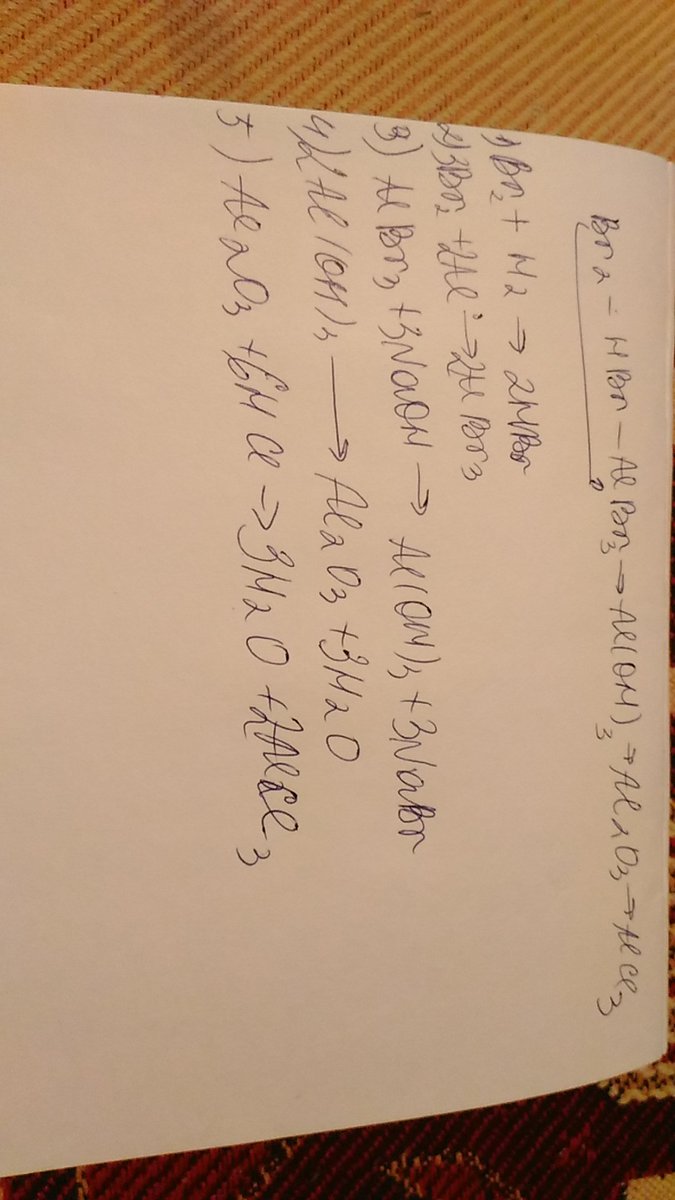 Br2 - HBr - AlBr3 → Al(OH)3 → Al2O3 → AlCl3
1) Br2 + H2 → 2HBr
2) 3Br2 + 2Al → 2AlBr3
3) AlBr3 + 3NaOH → Al(OH)3 + 3NaBr
4) 2Al(OH)3 → Al2O3 + 3H2O
5) Al2O3 + 6HCl → 3H2O + 2AlCl3